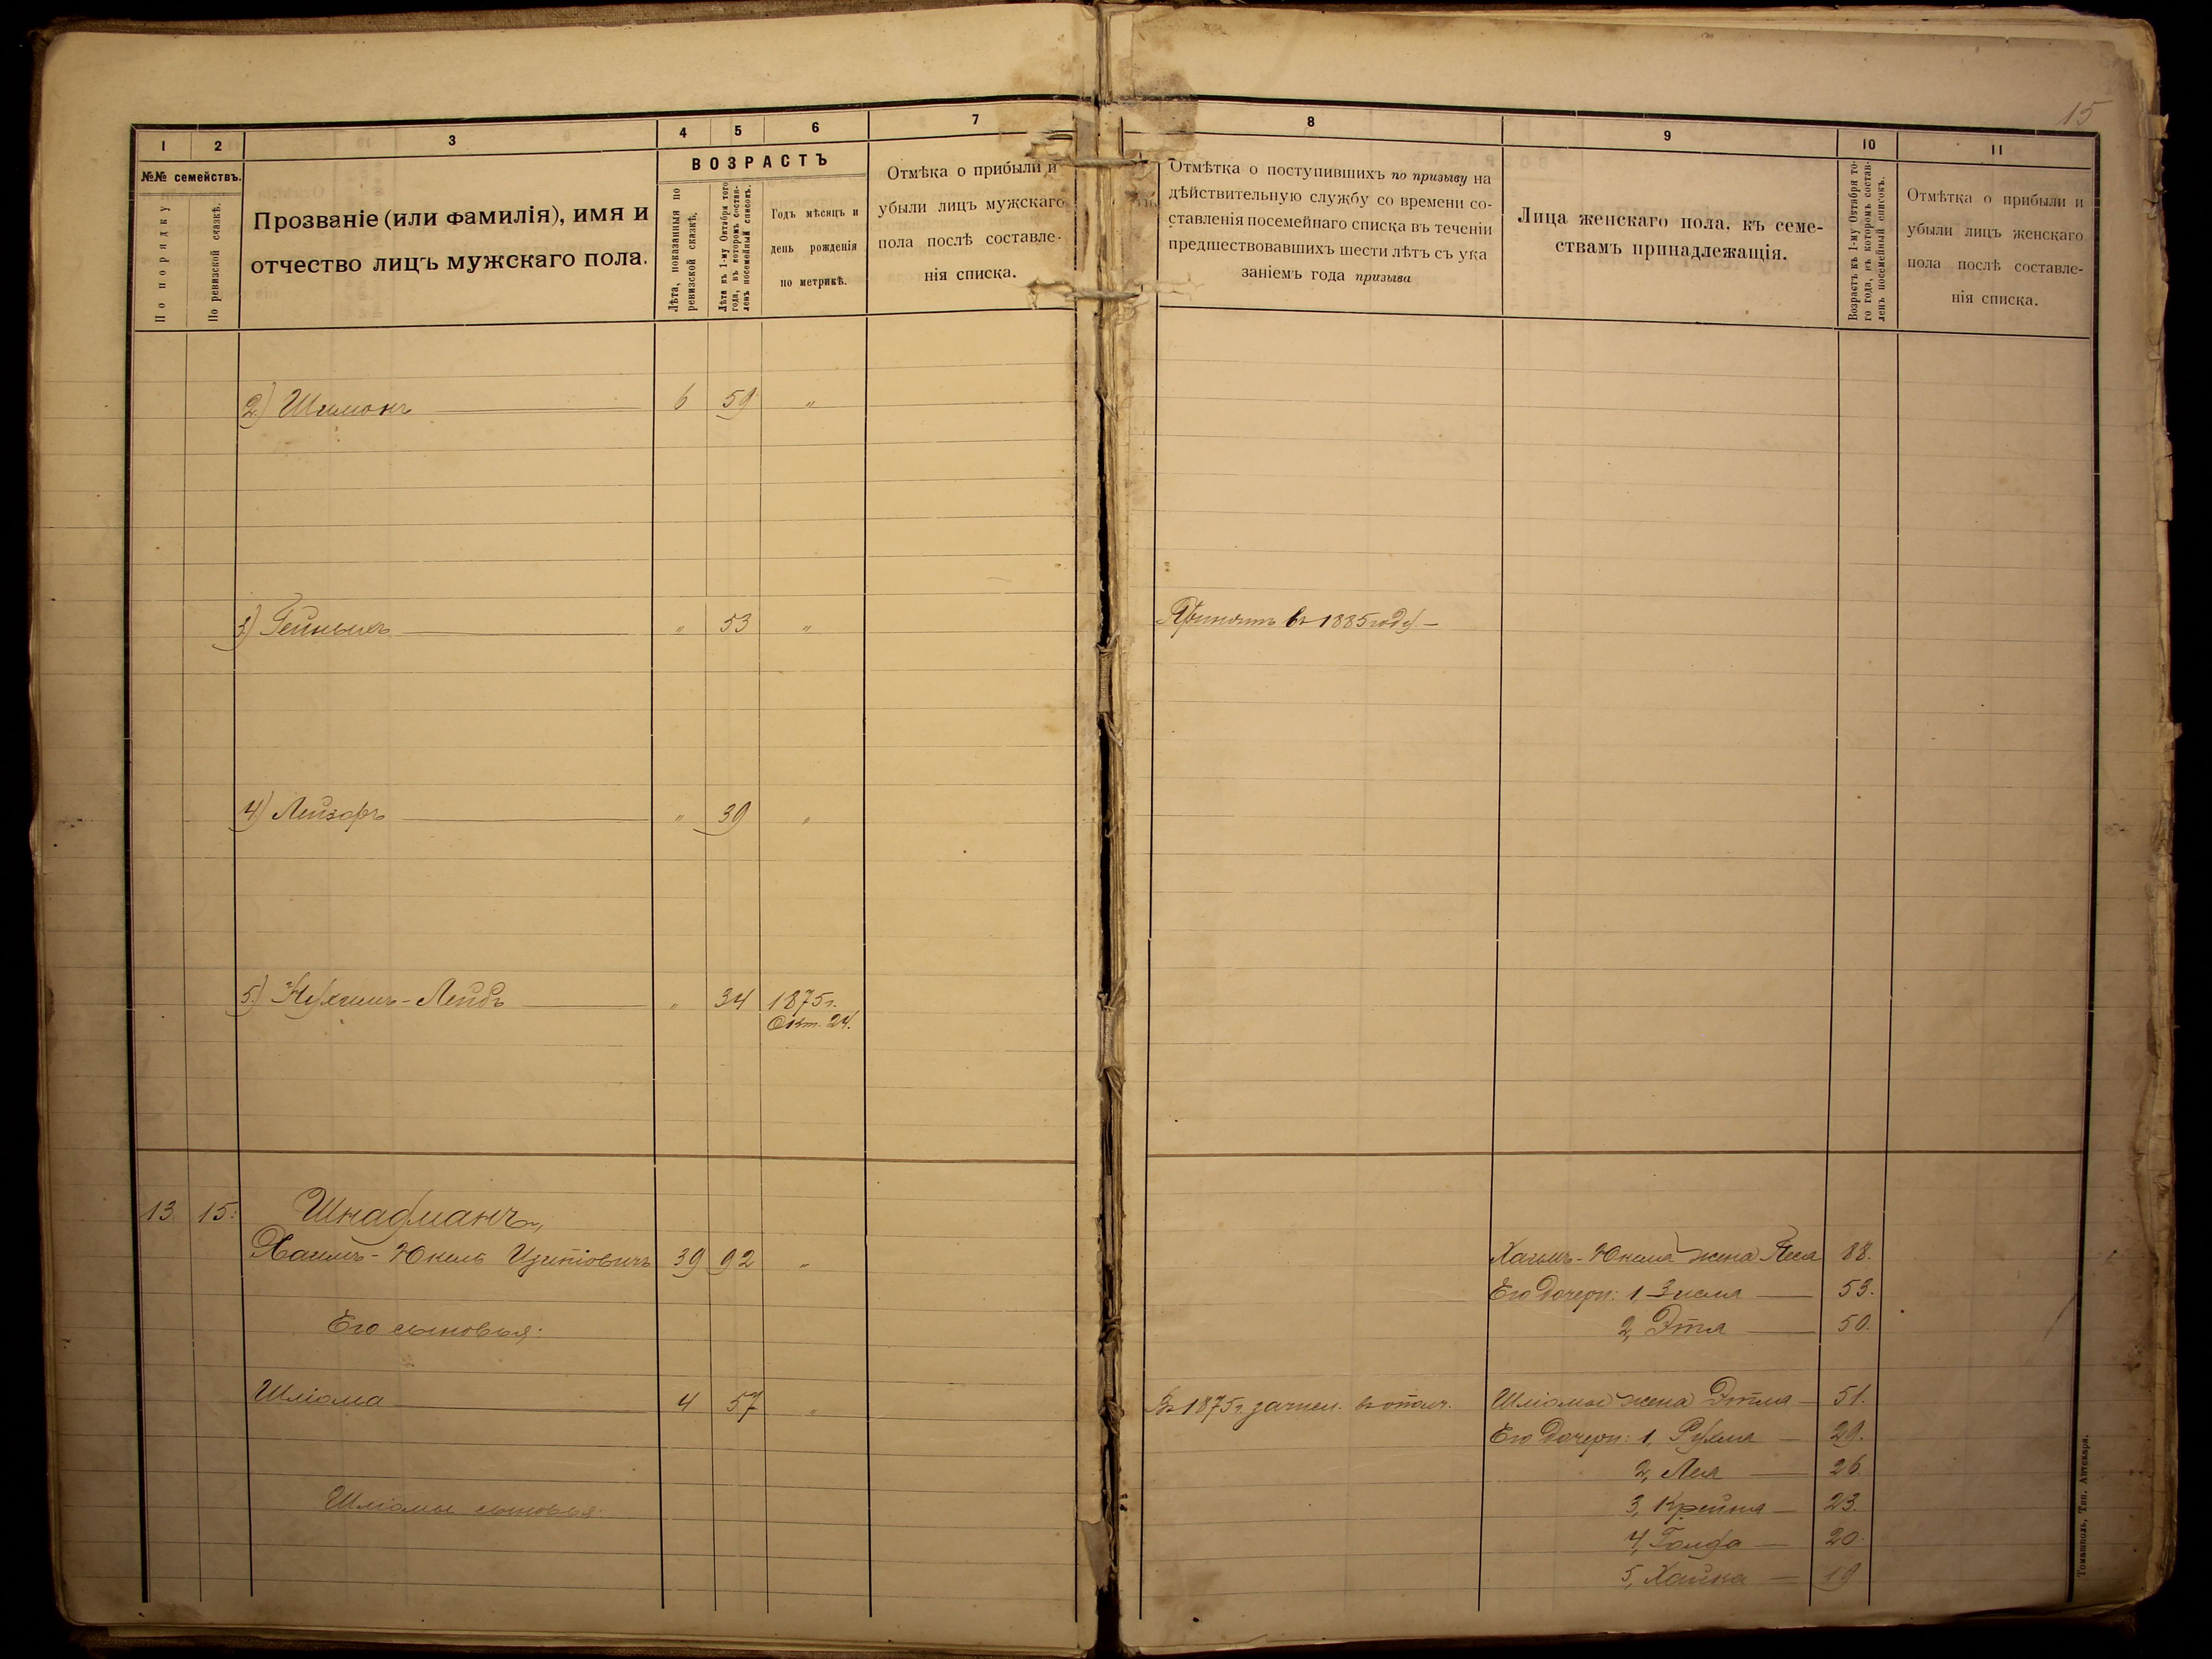 15
1 2 3 4 5 6 7
№№ семействъ.
По порядку
По ревизской сказкѣ.
Прозваніе (или фамилія), имя и
отчество лицъ мужскаго пола.
ВОЗРАСТЪ
Лѣта, показанныя по
ревизской сказкѣ.
Лѣта къ 1-му Октября того
года, въ которомъ состав-
ленъ посемейный списокъ.
Годъ мѣсяцъ и
день рожденія
по метрикѣ.
Отмѣка о прибыли и
убыли лицъ мужскаго
пола послѣ составле-
нія списка.
8 9 10 11
Отмѣтка о поступившихъ по призыву на
дѣйствительную службу со времени со-
ставленія посемейнаго списка въ теченіи
предшествовавшихъ шести лѣтъ съ ука
заніемъ года призыва
Лица женскаго пола, къ семе-
ствамъ принадлежащія.
Возрастъ къ 1-му Октября то-
го года, въ которомъ состав-
ленъ посемейный списокъ.
Отмѣтка о прибыли и
убыли лицъ женскаго
пола послѣ составле-
нія списка.
2) Шимонъ 6 59 "
3) Гейныхъ " 53 " Принятъ въ 1885 году.—
4) Лейзоръ " 39 "
5) Нухимъ-Лейбъ " 34 1875 г.
Окт. 24.
13 15: Шнафманъ,
Хаимъ-Юкель Ицковичъ 39 92 "
Хаимъ-Юкеля жена Песя 88.
Его дочери: 1, Зисля 53.
Его сыновья:
2, Этя 50.
Шліома 4 57 " Въ 1875 г. зачисл. въ ополч. Шліомы жена Этля 51.
Его дочери: 1, Рухля 29.
2, Лея 26
Шліомы сыновья:
3, Крейня 23.
4, Голда 20.
5, Хайка 19
Томашполь, Тип. Аптекаря.